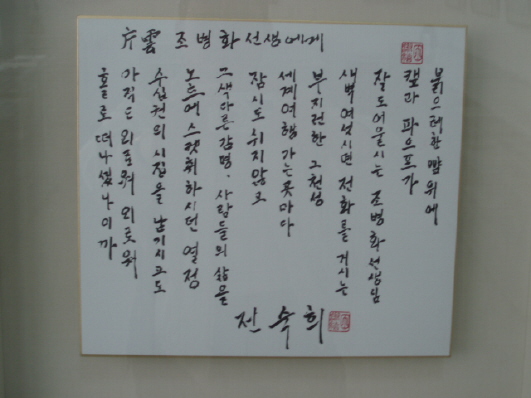 片雲 조병화선생에게
붉으레한 뺨위에
파으프가
잘도어울시는 조병화선생님
새벽여섯시면 전화를 거시는
부지런한 그천성
세계여행 가는곳마다
잠시도 쉬지않고
그색다른감명·사람들의 삶을
노트에 스켓취하시던 열정
수십권의 시집을 남기시고도
외로워 외로워
홀로 떠나셨나이까
전숙희